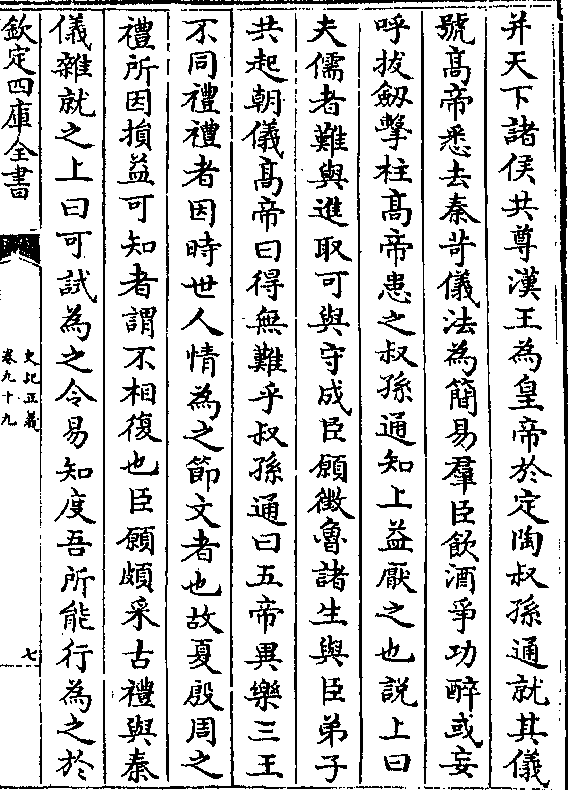 并天下諸侯共尊漢王為皇帝於定陶叔孫通就其儀
號髙帝悉去秦苛儀法為簡易羣臣飲酒爭功醉或妄
呼拔劒擊柱髙帝患之叔孫通知上益厭之也説上曰
夫儒者難與進取可與守成臣願徴魯諸生與臣弟子
共起朝儀髙帝曰得無難乎叔孫通曰五帝異樂三王
不同禮禮者因時世人情為之節文者也故夏殷周之
禮所因損益可知者謂不相復也臣願頗采古禮與秦
儀雜就之上曰可試為之令易知度吾所能行為之於
欽定四庫全書
史記正義
卷九十九
七